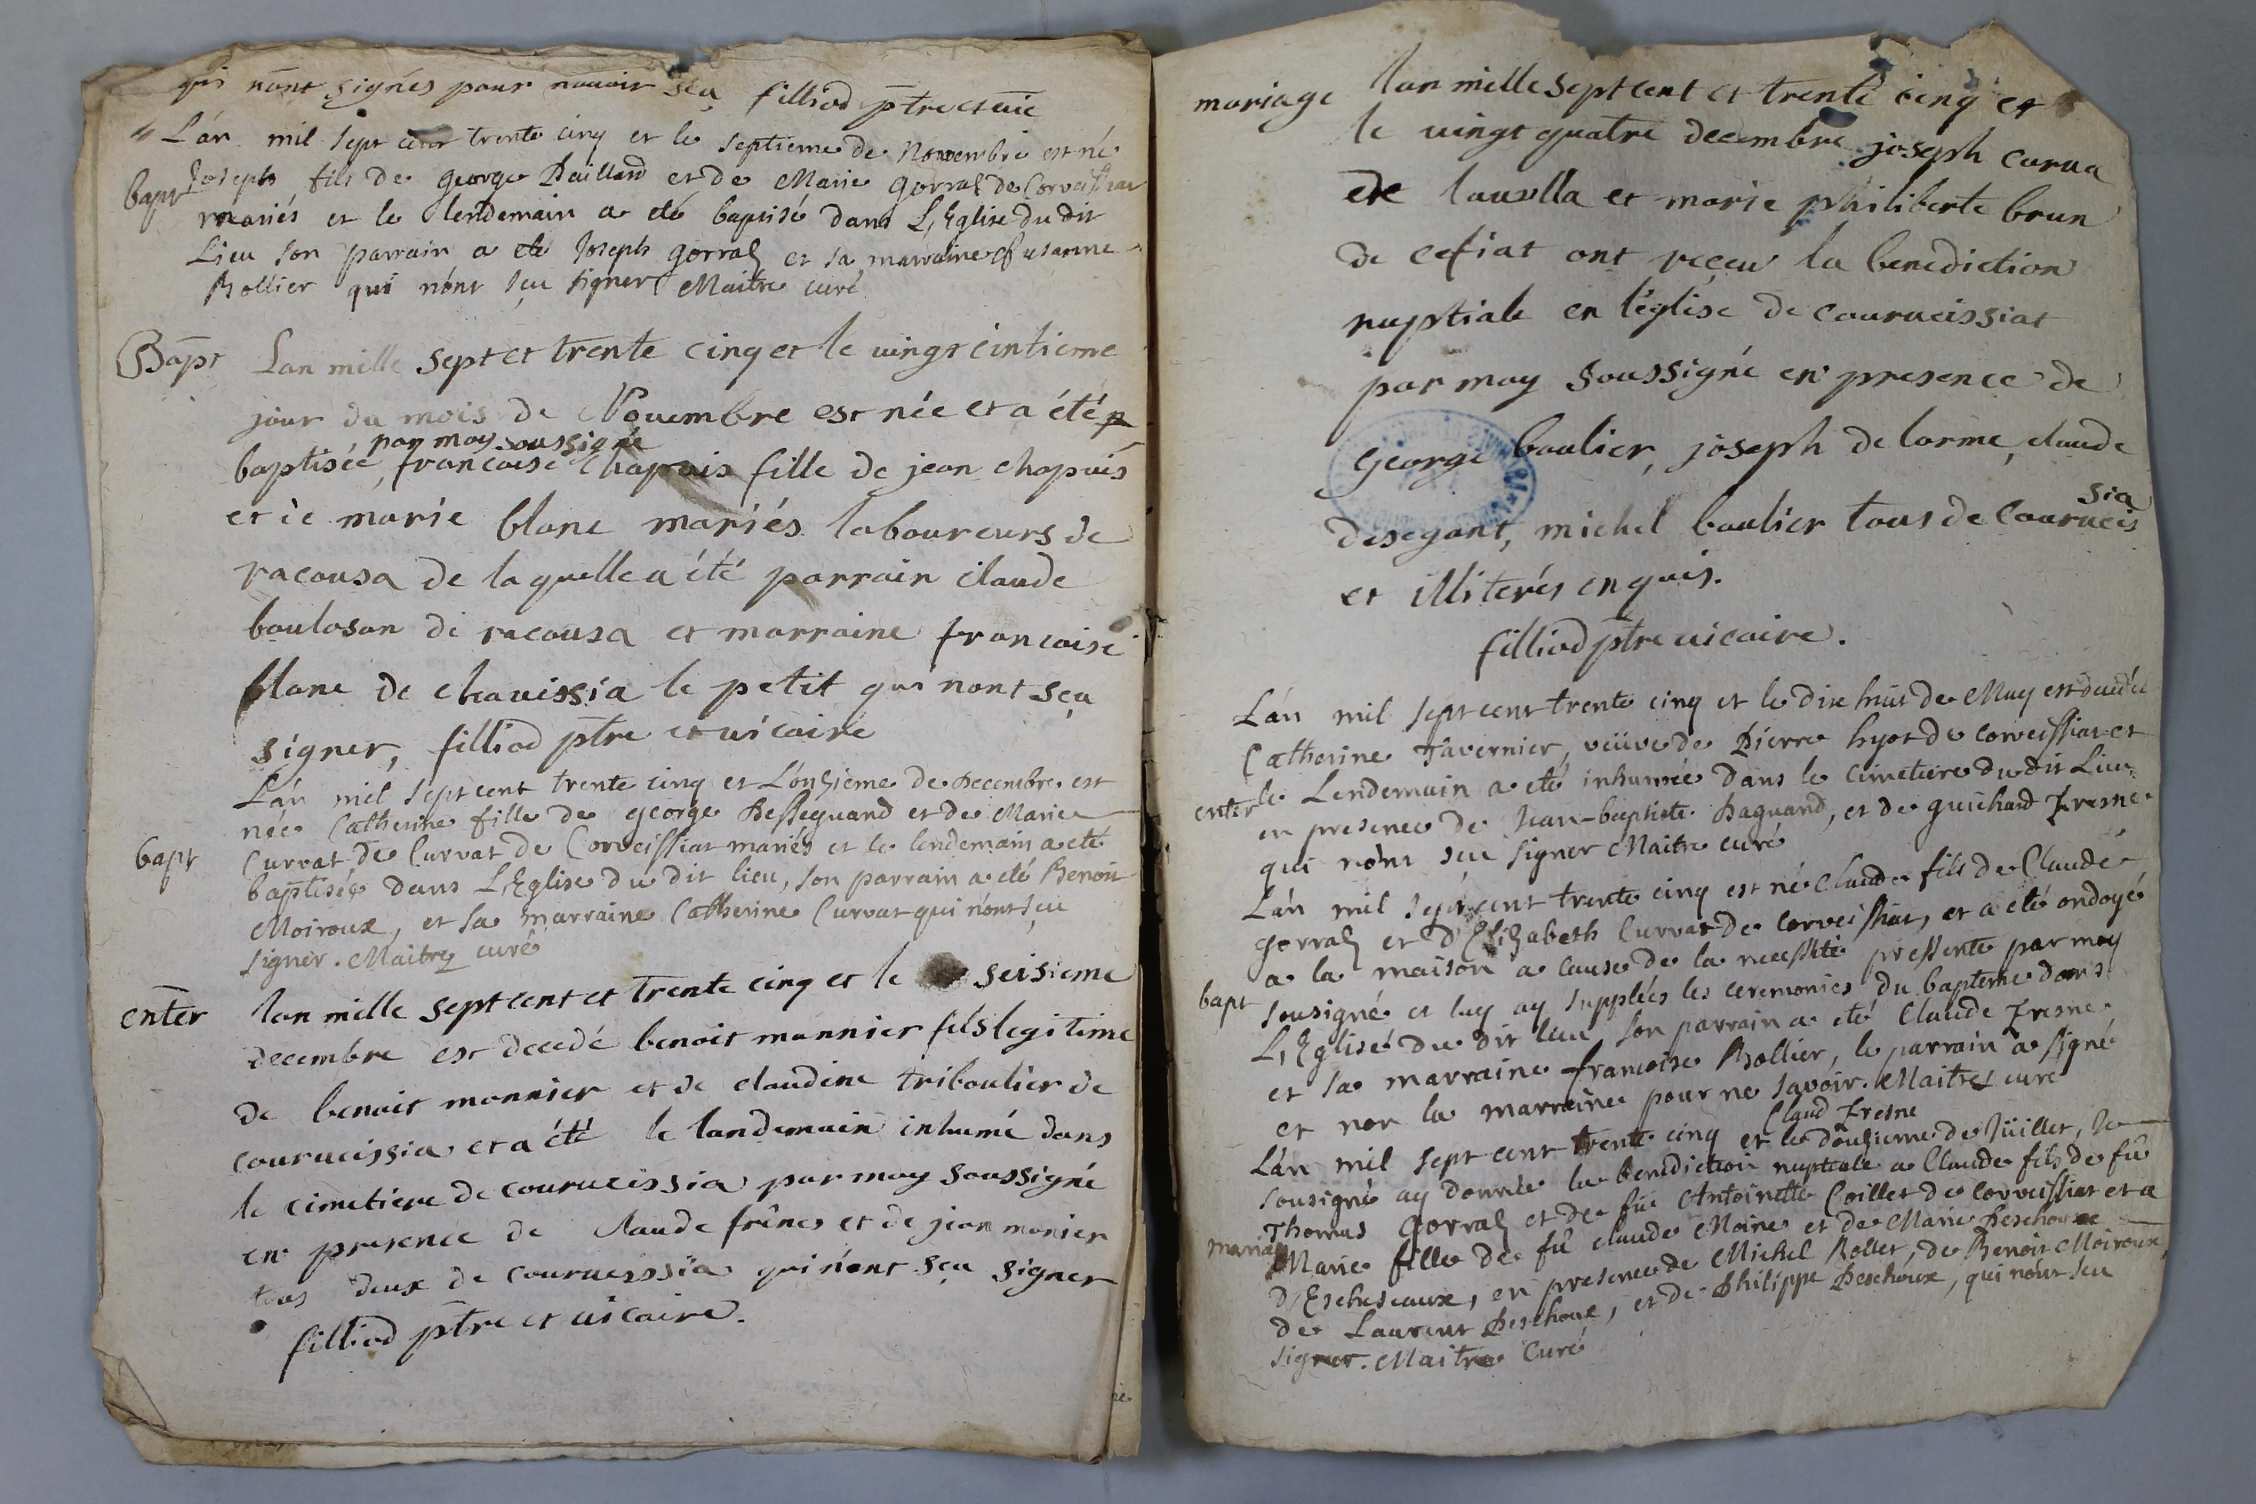 qui n'ont signés pour n'avoir sçu filliod ptre et vic
Lán mil sept cent trente cinq et le septieme de Novembre est né
bapt Joseph fils de george Paillard et de Marie gorraz de Corveissiat
mariés et le lendemain a eté baptisé dans L'Eglise du dit
Lieu son parrain a eté Joseph gorraz et sa marraine Susanne
Bollier qui n'ont sçu signer Maitre curé
Bapt Lan mille sept et trente cinq et le vingt cintieme
jour du mois de Nouembre est née et a été p
par moy soussigné
baptisée, francoise chapuis fille de jean chapuis
et de marie blanc mariés laboureurs de
racousa de laquelle a été parrain claude
bouloson de racousa et marraine francoise
blanc de chauissia le petit qui nont sçu
signer, filliod ptre et uicaire
Lán mil sept cent trente cinq et L'onzieme de Decembre est
née Catherine fille de george Desseguand et de Marie
Curvat de Curvat de Corveissiat mariés et le lendemain a eté
bapt baptisée dans L'Eglise du dit lieu, son parrain a eté Benoit
Moiroux, et sa marraine Catherine Curvat qui n'ont sçu
signer. Maitre curé
enter lan mille sept cent et trente cinq et le seisieme
decembre est decedé benoit monnier fils legitime
de benoit monnier et de claudine triboulier de
courueissia et a été le landemain inhumé dans
le cimetiere de couruëissia par moy soussigné
en presence de claude frênes et de jean monier
tous deux de couruesssïa qui n'ont sçu signer
filliod ptre et uicaire.
mariage lan mille sept cent et trente cinq et
le uingt quatre decembre joseph curua
de lauella et marie philiberte brun
de cefiat ont reçeu la benediction
nuptiale en l'église de couruеissiat
par moy soussigné en presence de
george boulier, joseph de lorme, claude
sia
desegant, michel boulier tous de Couruеis
et illiterés enquis.
filliod ptre uicaire.
Lán mil sept cent trente cinq et le dixe huit de May est decedée
Catherine Tavernier, veüve de Pierre hyot de corveissiat et
enter le Lendemain a eté inhumée dans le cimetiere du dit Lieu
en presence de Jean-baptiste Paguand, et de guichard Fresne
qui n'ont sçu signer Maitre curé
Lán mil sept cent trente cinq est né Claude fils de Claude
gorraz et d'Elizabeth Curvat de corveissiat, et a eté ondoyé
a la maison a cause de la necessité pressente par moy
bapt sousigné et luy ay supplées les ceremonies du bapteme dans
L'Eglisé du dit lieu son parrain a eté Claude Fresne
et sa marraine francoise Bollier, le parrain a signé
et non la marraine pour ne savoir. Maitre curé
Claud Fresne
Lán mil sept cent trente cinq et le douzieme de Jüillet, Je
sousigné ay donnée la benediction nuptiale a Claude fils de fû
Thomas Gorraz et de füe Antoinette Coillet de corveissiat et a
mariag Marie fille de fû claude Moine et de Marie Deschoux
d'Escheseaux, en presence de Michel Bollet, de Benoit Moiroux,
de Laurent Deschoux, et de Philippe Deschoux, qui n'ont sçu
signer. Maitre Curé